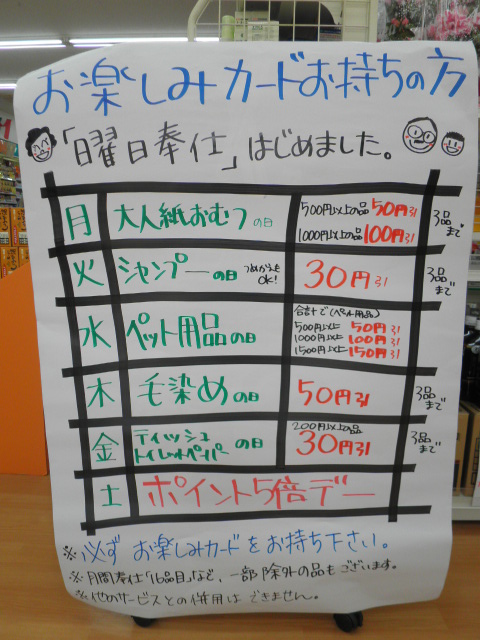 お楽しみカードお持ちの方
「曜日奉仕」はじめました。
月 大人紙おむつの日 500円以上の品50円引 1000円以上の品100円引 3品まで
火 シャンプーの日 つめかえもOK! 30円引 3品まで
水 ペット用品の日 合計で(ペット用品) 500円以上 50円引 1000円以上 100円引 1500円以上 150円引
木 毛染めの日 50円引 3品まで
金 ティッシュ トイレットペーパーの日 200円以上の品 30円引 3品まで
土 ポイント5倍デー
※必ずお楽しみカードをお持ち下さい。
※月間奉仕「16品目」など、一部除外の品もございます。
※他のサービスとの併用はできません。